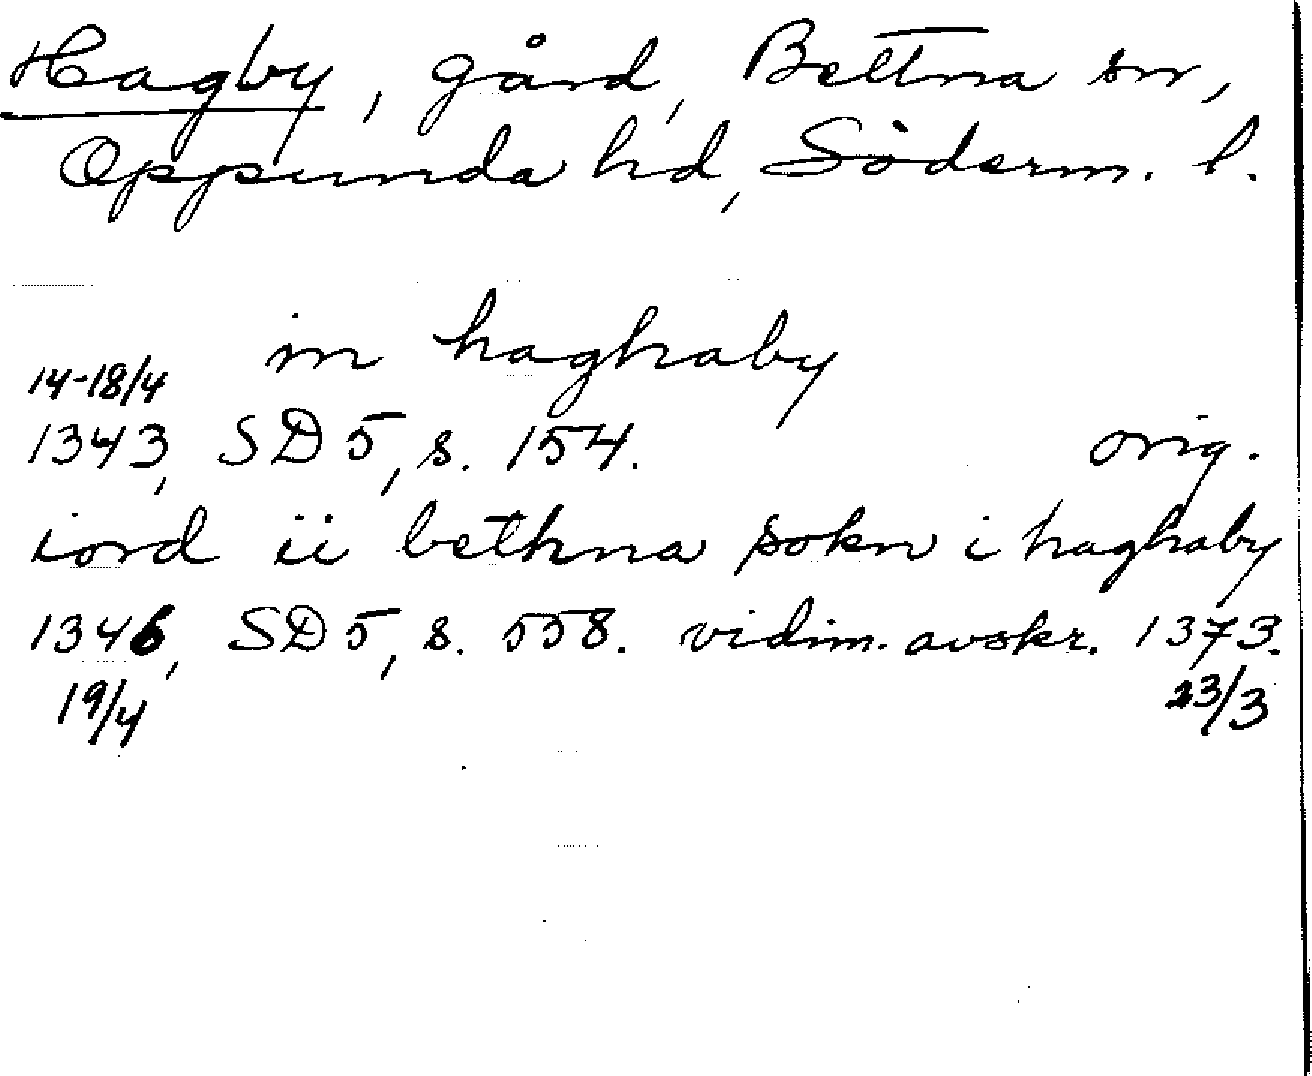 Hagby, gård, Bettna sn,
Oppunda hd, Söderm. l.
in haghaby
14-18/4
1343, SD 5, s. 154. orig.
iord ii bethna sokn i haghaby
1346, SD 5, s. 558. vidim. avskr. 1373.
19/4 23/3